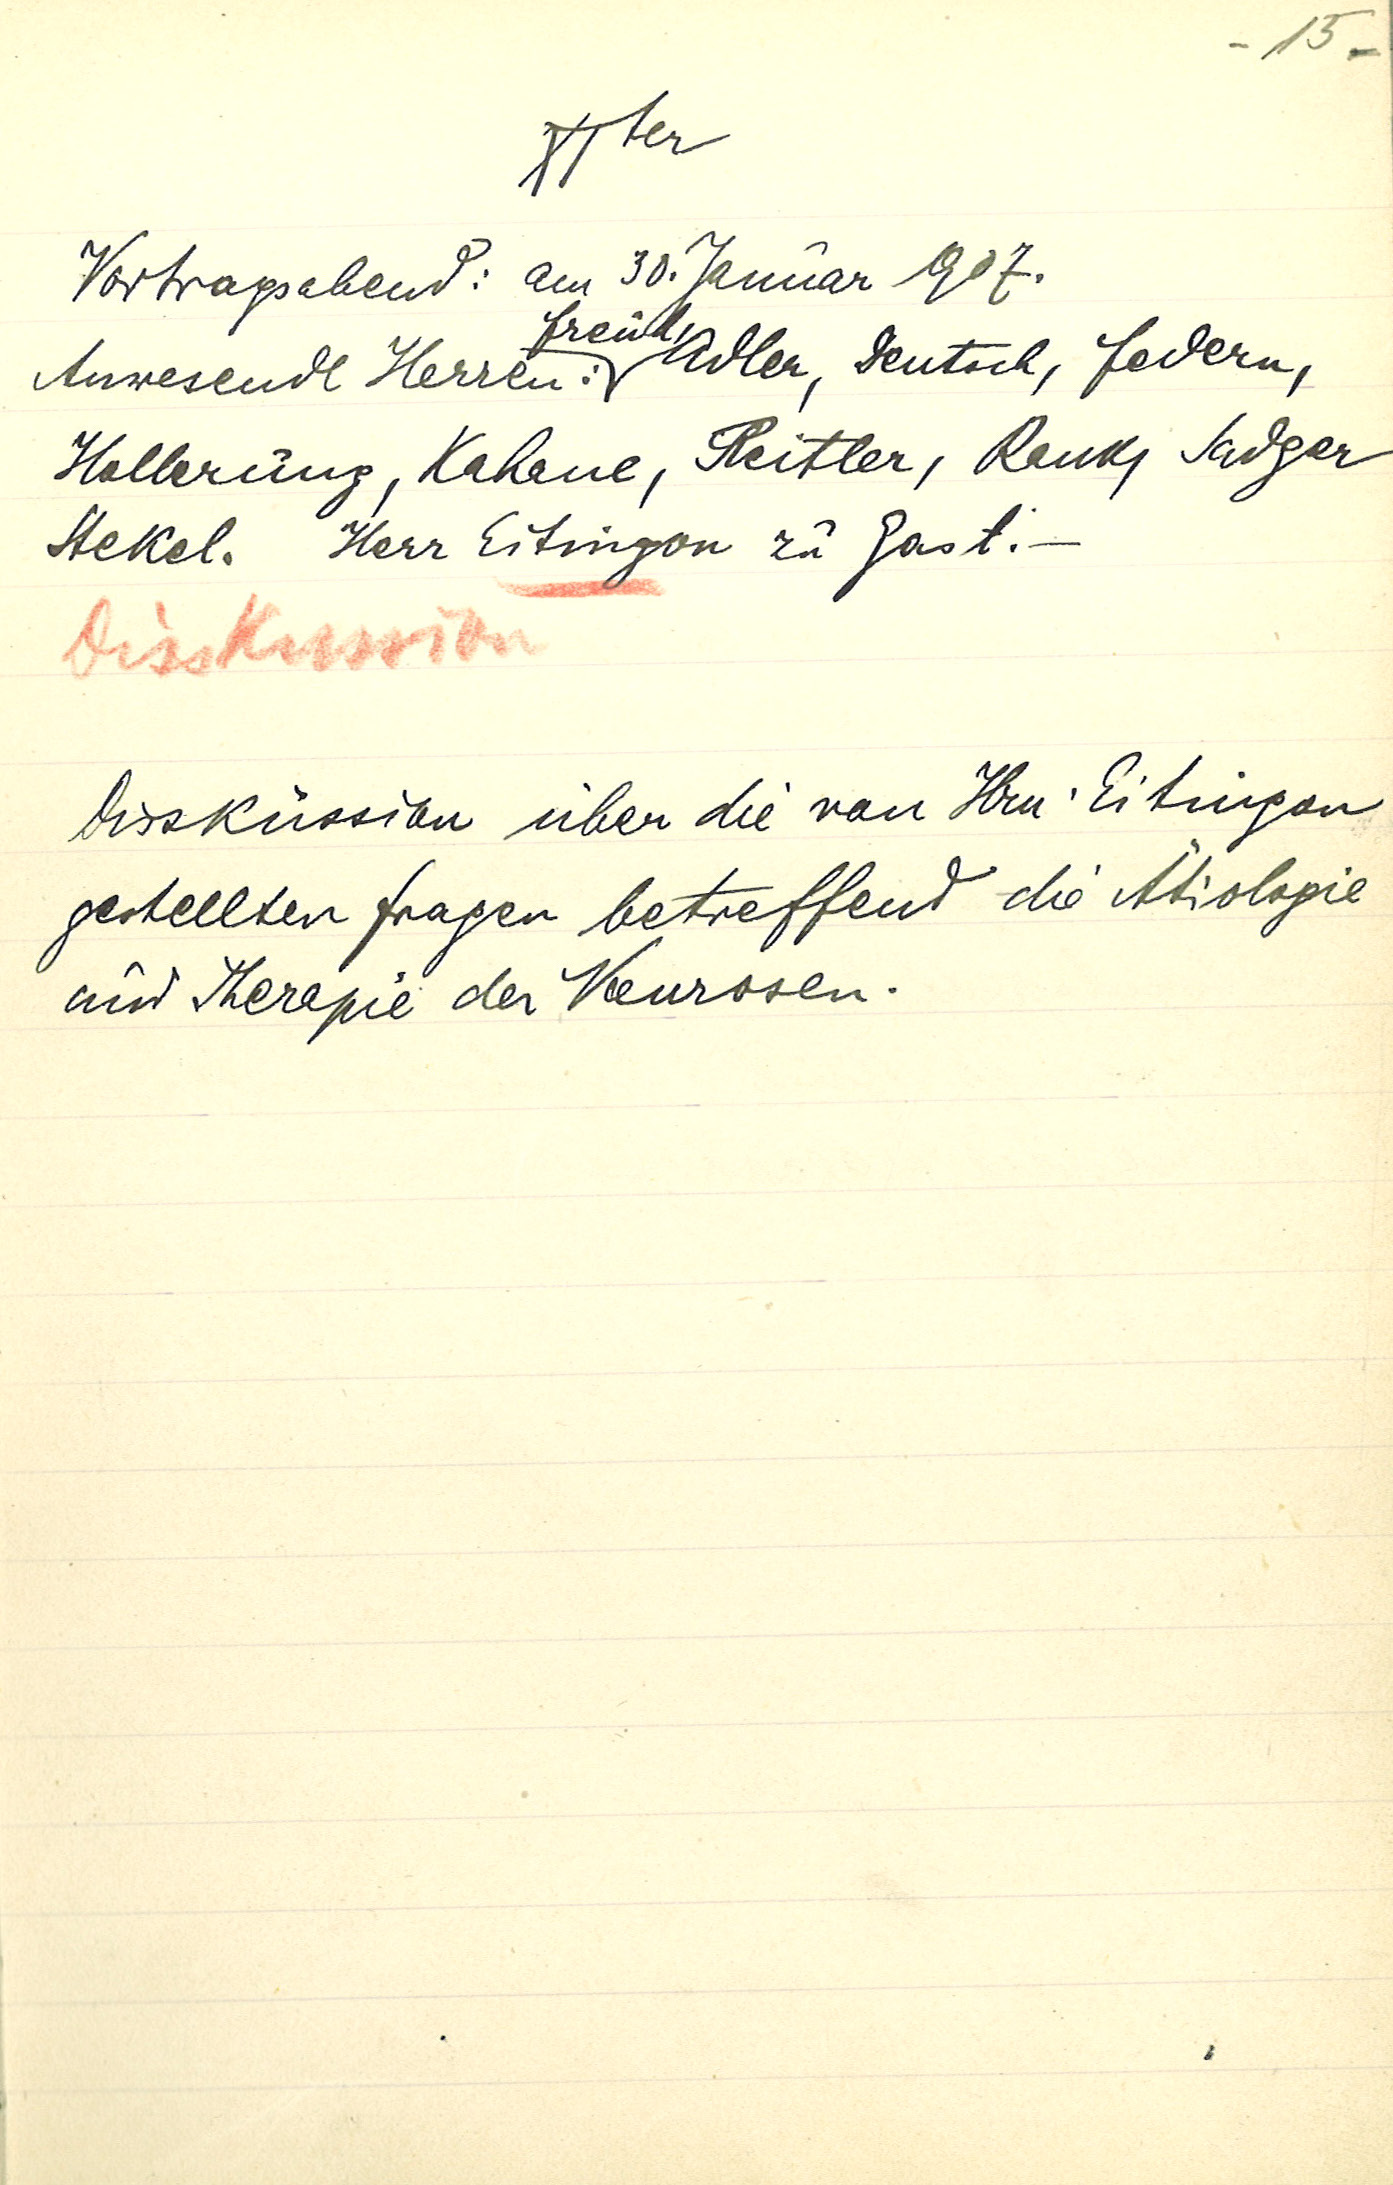 - 15 -
XIter
Vortragsabend: am 30. Januar 907.
Freud,
Anwesende Herren: Adler, Deutsch, Federn,
Hollerung, Kahane, Reitler, Rank, Sadger
Stekel. Herr Eitingon zu Gast. —
Disskussion
Disskussion über die von Hrn. Eitingon
gestellten Fragen betreffend die Ätiologie
und Therapie der Neurosen.